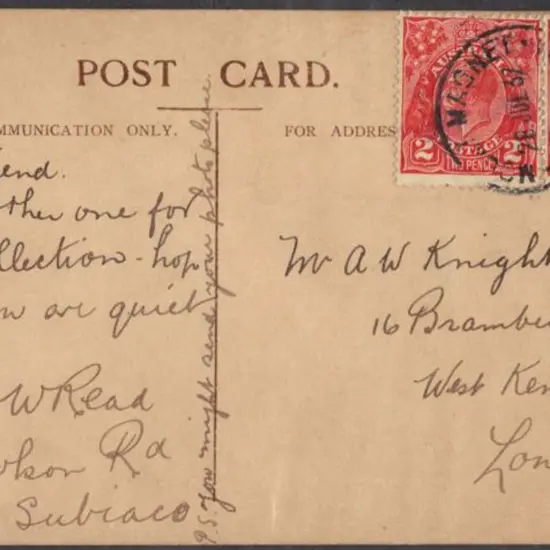 POST CARD.
MMUNICATION ONLY.
FOR ADDRES
end.
ther one for
llection - hop
w are quiet
W Read
olson Rd
Subiaco
P.S. You might send your photo please.
Mr A W Knight
16 Brambe
West Ken
Lon
AUSTRALIA
2 POSTAGE 2
TWO PENCE
MAGNET